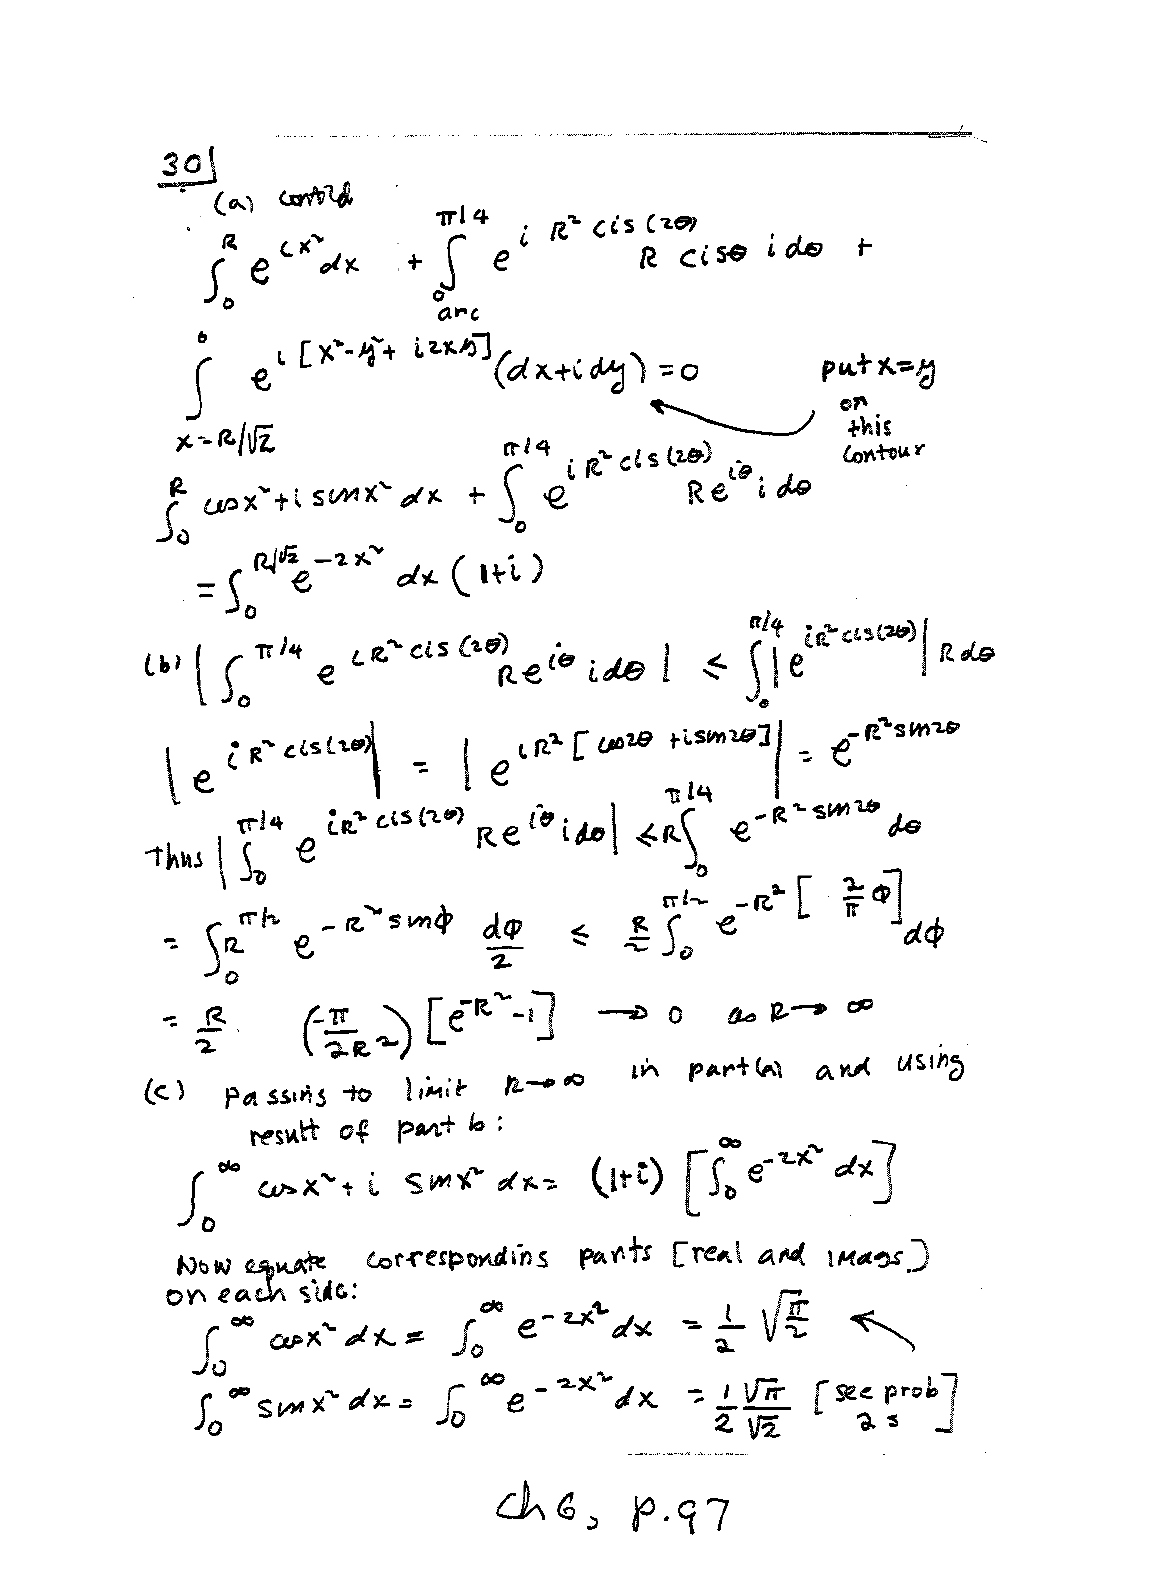 30
(a) contd
∫_0^R e^{ix²} dx + ∫_{0 arc}^{π/4} e^{i R² cis(2θ)} R cisθ i dθ +
∫_{x=R/√2}^0 e^{i[x²-y²+i2xy]} (dx+idy) = 0 put x=y
on
this
contour
∫_0^R cosx²+i sinx² dx + ∫_0^{π/4} e^{i R² cis(2θ)} R e^{iθ} i dθ
= ∫_0^{R/√2} e^{-2x²} dx (1+i)
(b) |∫_0^{π/4} e^{iR² cis(2θ)} R e^{iθ} i dθ| ≤ ∫_0^{π/4} |e^{iR² cis(2θ)}| R dθ
|e^{i R² cis(2θ)}| = |e^{iR²[cos2θ + i sin2θ]}| = e^{-R² sin2θ}
Thus |∫_0^{π/4} e^{iR² cis(2θ)} R e^{iθ} i dθ| ≤ R∫_0^{π/4} e^{-R² sin2θ} dθ
= ∫_0^{π/2} R e^{-R² sinϕ} dϕ/2 ≤ R/2 ∫_0^{π/2} e^{-R²[2/π ϕ]} dϕ
= R/2 (-π/2R²) [e^{-R²}-1] → 0 as R→ ∞
(c) passing to limit R→∞ in part(a) and using
result of part b:
∫_0^∞ cosx²+ i sinx² dx = (1+i) [∫_0^∞ e^{-2x²} dx]
Now equate corresponding parts [real and imags.]
on each side:
∫_0^∞ cosx² dx = ∫_0^∞ e^{-2x²} dx = 1/2 √(π/2)
∫_0^∞ sinx² dx = ∫_0^∞ e^{-2x²} dx = 1/2 √π/√2 [see prob
2s]
ch6, p.97